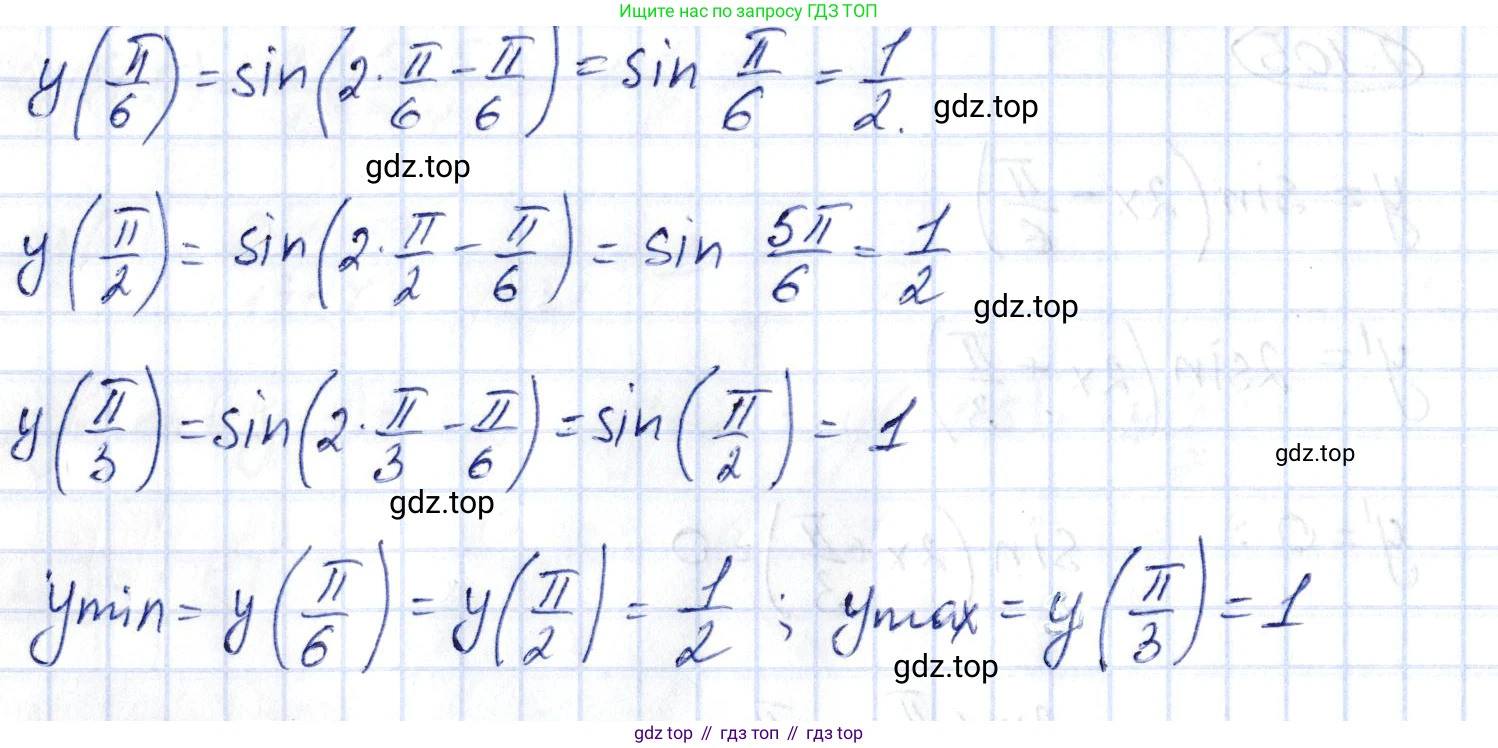 Ищите нас по запросу ГДЗ ТОП
y(π/6) = sin(2·π/6 − π/6) = sin π/6 = 1/2. gdz.top
gdz.top
y(π/2) = sin(2·π/2 − π/6) = sin 5π/6 = 1/2
gdz.top
y(π/3) = sin(2·π/3 − π/6) = sin(π/2) = 1
gdz.top
gdz.top
ymin = y(π/6) = y(π/2) = 1/2 ; ymax = y(π/3) = 1
gdz.top
gdz top // гдз топ // гдз top